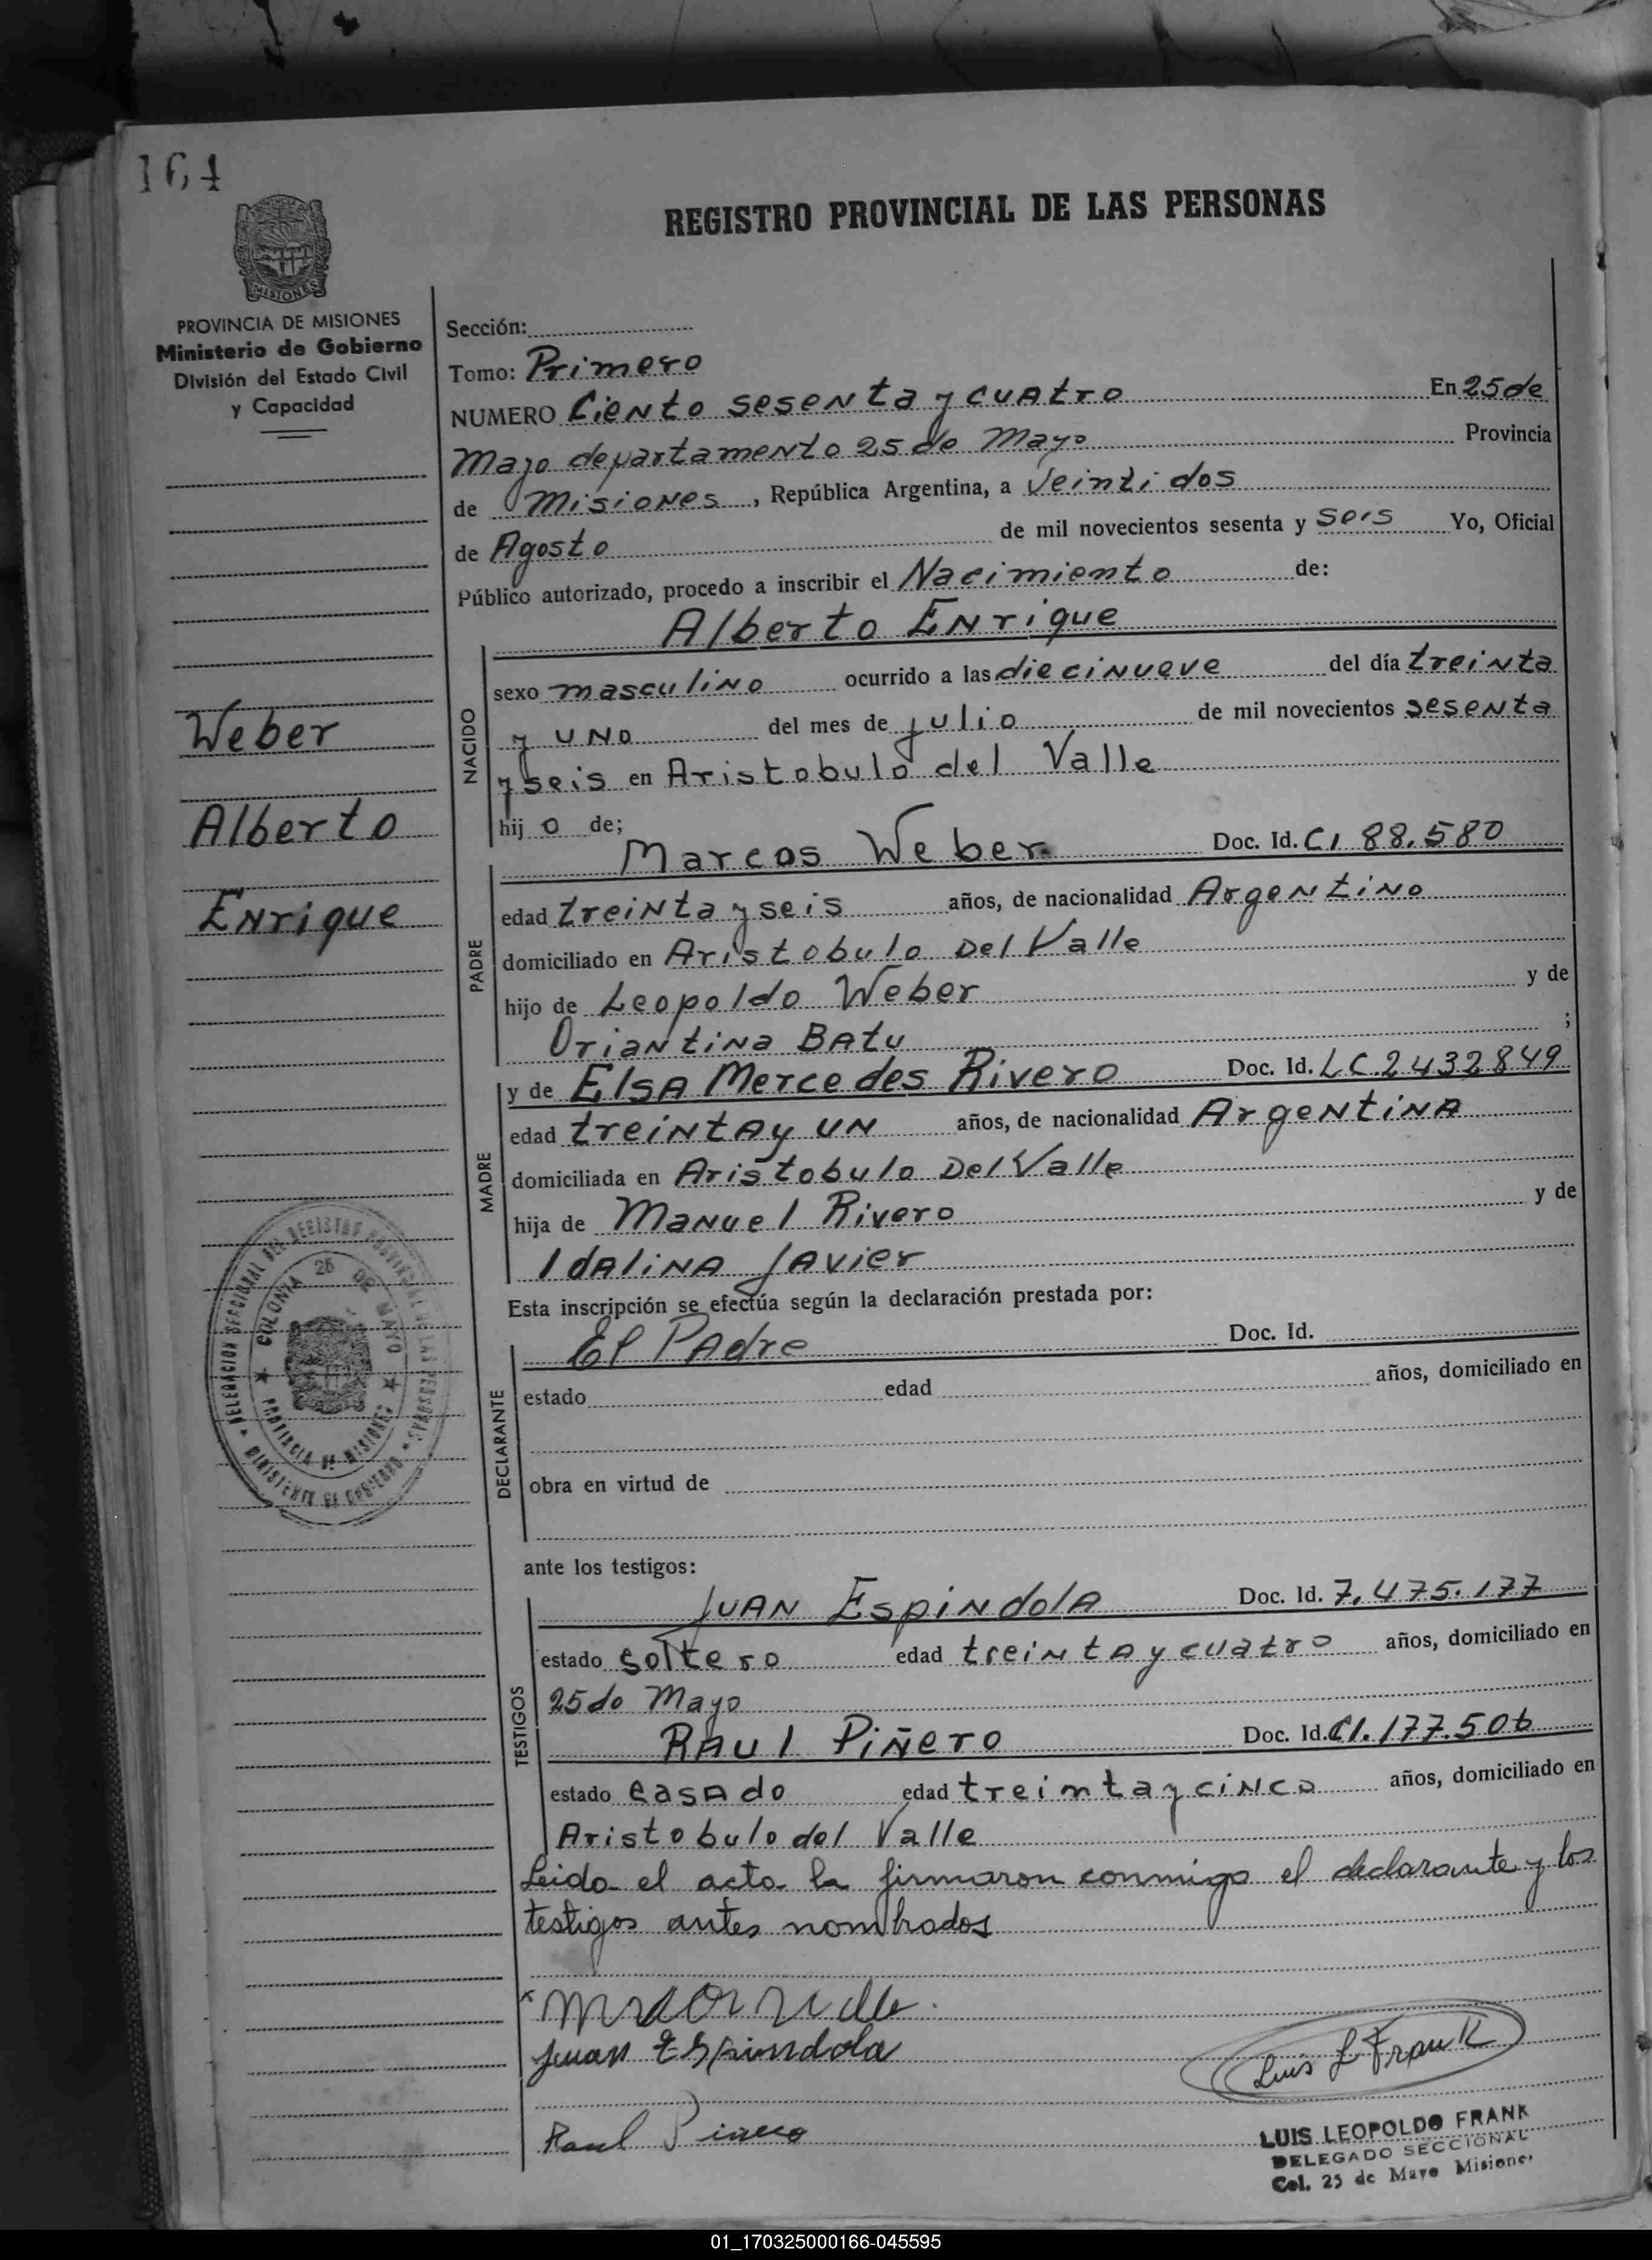 164
REGISTRO PROVINCIAL DE LAS PERSONAS
MISIONES
PROVINCIA DE MISIONES
Ministerio de Gobierno
División del Estado Civil
y Capacidad
Weber
Alberto
Enrique
Sección:
Tomo: Primero
NUMERO Ciento sesenta y cuatro En 25 de
Mayo departamento 25 de Mayo Provincia
de Misiones, República Argentina, a Veintidos
de Agosto de mil novecientos sesenta y seis Yo, Oficial
Público autorizado, procedo a inscribir el Nacimiento de:
Alberto Enrique
NACIDO
sexo masculino ocurrido a las diecinueve del día treinta
y uno del mes de julio de mil novecientos sesenta
y seis en Aristobulo del Valle
hijo de;
Marcos Weber Doc. Id. CI 88.580
PADRE
edad treinta y seis años, de nacionalidad Argentino
domiciliado en Aristobulo Del Valle
hijo de Leopoldo Weber y de
Oriantina Batu ;
y de Elsa Mercedes Rivero Doc. Id. LC 2432849
MADRE
edad treinta y un años, de nacionalidad Argentina
domiciliada en Aristobulo Del Valle
hija de Manuel Rivero y de
Idalina Javier
Esta inscripción se efectúa según la declaración prestada por:
El Padre Doc. Id.
DECLARANTE
estado edad años, domiciliado en
obra en virtud de
ante los testigos:
Juan Espindola Doc. Id. 7.475.177
TESTIGOS
estado soltero edad treinta y cuatro años, domiciliado en
25 de Mayo
Raul Piñero Doc. Id. CI. 177.506
estado casado edad treinta y cinco años, domiciliado en
Aristobulo del Valle
Leida el acta la firmaron conmigo el declarante y los
testigos antes nombrados
Juan Espindola
Luis L Frank
Raul Piñero
LUIS LEOPOLDO FRANK
DELEGADO SECCIONAL
Col. 25 de Mayo Misiones
DELEGACION SECCIONAL DEL REGISTRO PROVINCIAL DE LAS PERSONAS
MINISTERIO DE GOBIERNO
COLONIA 25 DE MAYO
PROVINCIA DE MISIONES
01_170325000166-045595